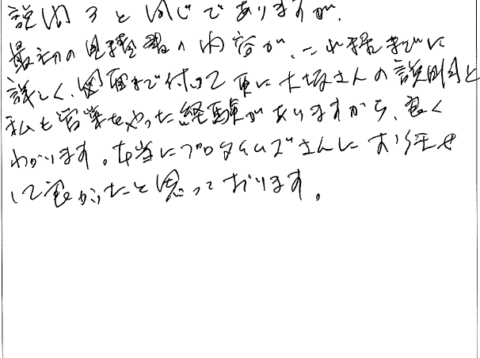 設問3と同じでありますが、
最初の見積書の内容が、これ程までに
詳しく、図面まで付けて更に大坂さんの説明力と
私も営業をやった経験がありますから、良く
わかります。本当にプロタイムズさんにお任せ
して良かったと思っております。